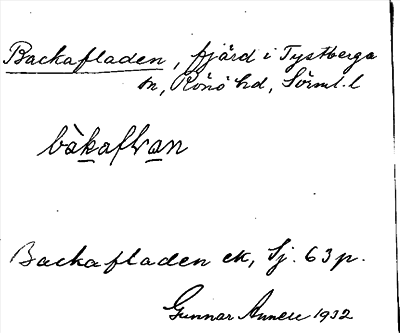 Backafladen, fjärd i Tystberga
sn, Rönö hd, Sörml. l
bàkaflan
Backafladen ek, Sj. 63 p.
Gunnar 1932